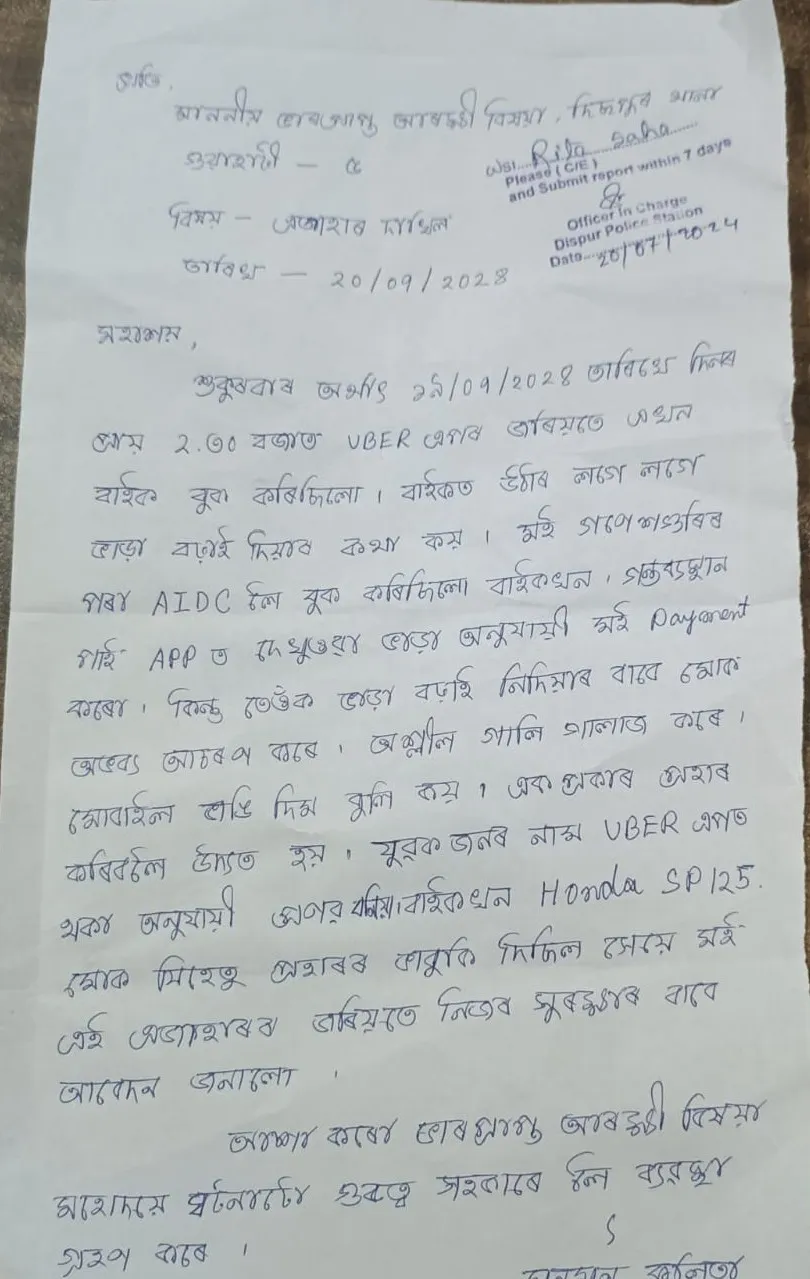 প্ৰতি,
মাননীয় ভাৰপ্ৰাপ্ত আৰক্ষী বিষয়া, দিছপুৰ থানা
গুৱাহাটী – ৫
WSI.... Rita Saha
Please (C/E)
and Submit report within 7 days
Officer In Charge
Dispur Police Station
Date... 20/07/2024
বিষয় – এজাহাৰ দাখিল
তাৰিখ – ২০/০৭/২০২৪
মহাশয়,
শুকুৰবাৰ অৰ্থাৎ ১৯/০৭/২০২৪ তাৰিখে দিনৰ
প্ৰায় ২.৩০ বজাত UBER এপৰ জৰিয়তে এখন
বাইক বুক কৰিছিলো। বাইকত উঠাৰ লগে লগে
ভাড়া বঢ়াই দিয়াৰ কথা কয়। মই গণেশগুৰিৰ
পৰা AIDC লৈ বুক কৰিছিলো বাইকখন। গন্তব্যস্থান
পাই APP ত দেখুওৱা ভাড়া অনুযায়ী মই Payment
কৰো। কিন্তু তেওঁক ভাড়া বঢ়াই নিদিয়াৰ বাবে মোক
অভব্য আচৰণ কৰে। অশ্লীল গালি গালাজ কৰে।
মোবাইল ভাঙি দিম বুলি কয়। এক প্ৰকাৰ প্ৰহাৰ
কৰিবলৈ উদ্যত হয়। যুৱক জনৰ নাম UBER এপত
থকা অনুযায়ী প্ৰণৱ বনিয়া। বাইকখন Honda SP125.
মোক যিহেতু প্ৰহাৰৰ ভাবুকি দিছিল সেয়ে মই
এই এজাহাৰৰ জৰিয়তে নিজৰ সুৰক্ষাৰ বাবে
আবেদন জনালো।
আশা কৰো ভাৰপ্ৰাপ্ত আৰক্ষী বিষয়া
মহোদয়ে ঘটনাটো গুৰুত্ব সহকাৰে লৈ ব্যৱস্থা
গ্ৰহণ কৰে।